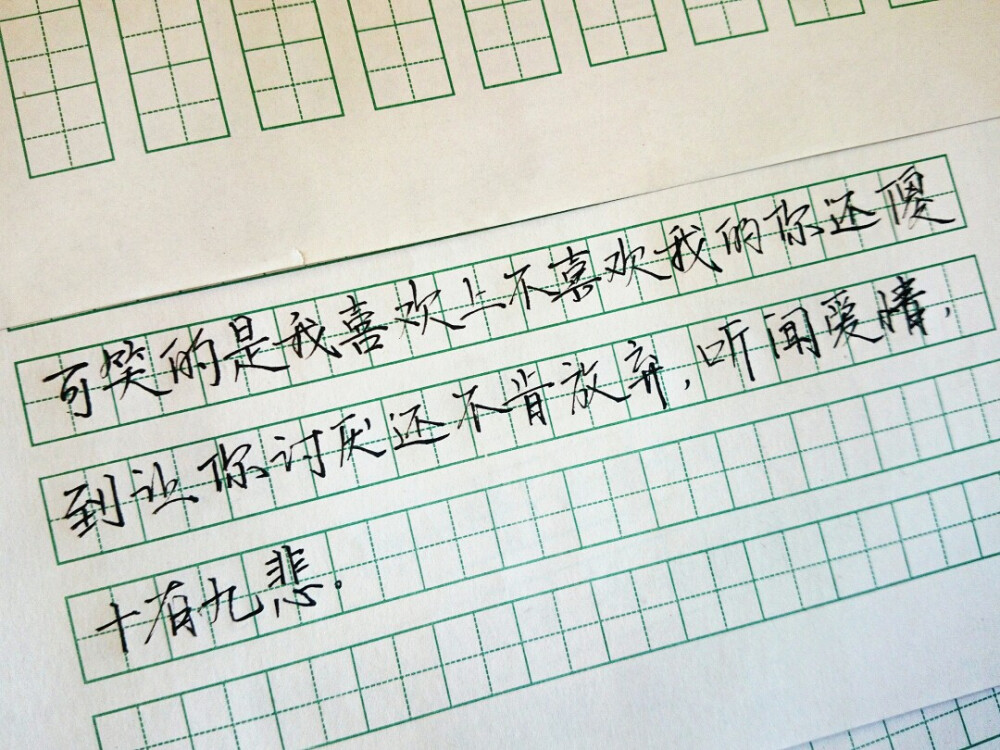 可笑的是我喜欢上不喜欢我的你还傻
到让你讨厌还不肯放弃，听闻爱情，
十有九悲.